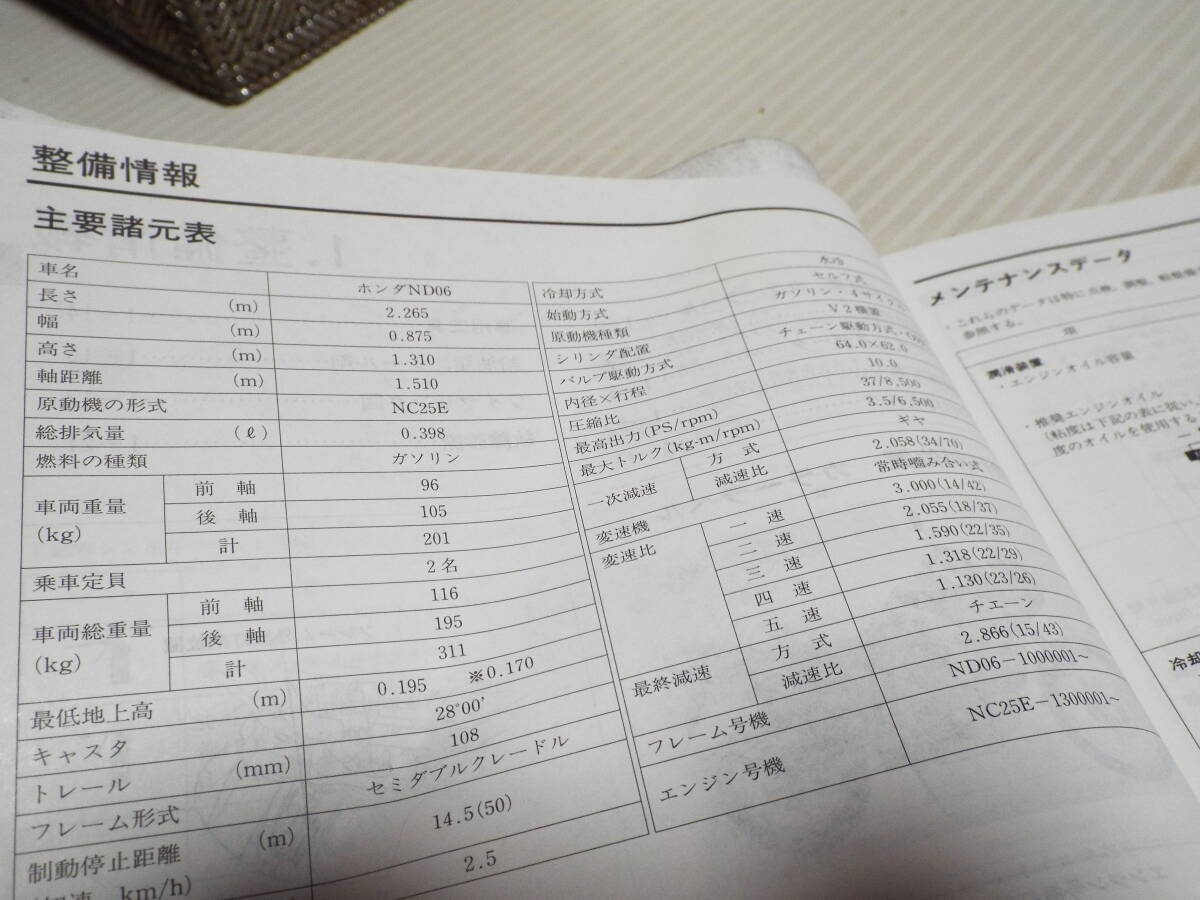 整備情報
主要諸元表
車名 ホンダND06
長さ (m) 2.265
幅 (m) 0.875
高さ (m) 1.310
軸距離 (m) 1.510
原動機の形式 NC25E
総排気量 (ℓ) 0.398
燃料の種類 ガソリン
車両重量 (kg) 前軸 96
後軸 105
計 201
乗車定員 2名
車両総重量 (kg) 前軸 116
後軸 195
計 311
最低地上高 (m) 0.195 ※0.170
キャスタ 28°00′
トレール (mm) 108
フレーム形式 セミダブルクレードル
制動停止距離 (m) 14.5(50)
km/h)
2.5
冷却方式 水冷
始動方式 セルフ式
原動機種類 ガソリン・4サイク
シリンダ配置 V2横置
バルブ駆動方式 チェーン駆動方式・
内径×行程 64.0×62.0
圧縮比 10.0
最高出力(PS/rpm) 37/8,500
最大トルク(kg-m/rpm) 3.5/6,500
一次減速 方式 ギヤ
減速比 2.058(34/70)
変速機 常時噛み合い式
変速比 一速 3.000(14/42)
二速 2.055(18/37)
三速 1.590(22/35)
四速 1.318(22/29)
五速 1.130(23/26)
最終減速 方式 チエーン
減速比 2.866(15/43)
フレーム号機 ND06-1000001~
エンジン号機 NC25E-1300001~
メンテナンスデータ
・これらのデータは特に点検、調整、
参照する。
項
潤滑装置
・エンジンオイル容量
・推奨エンジンオイル
(粘度は下記の表に従い、
度のオイルを使用する
冷却